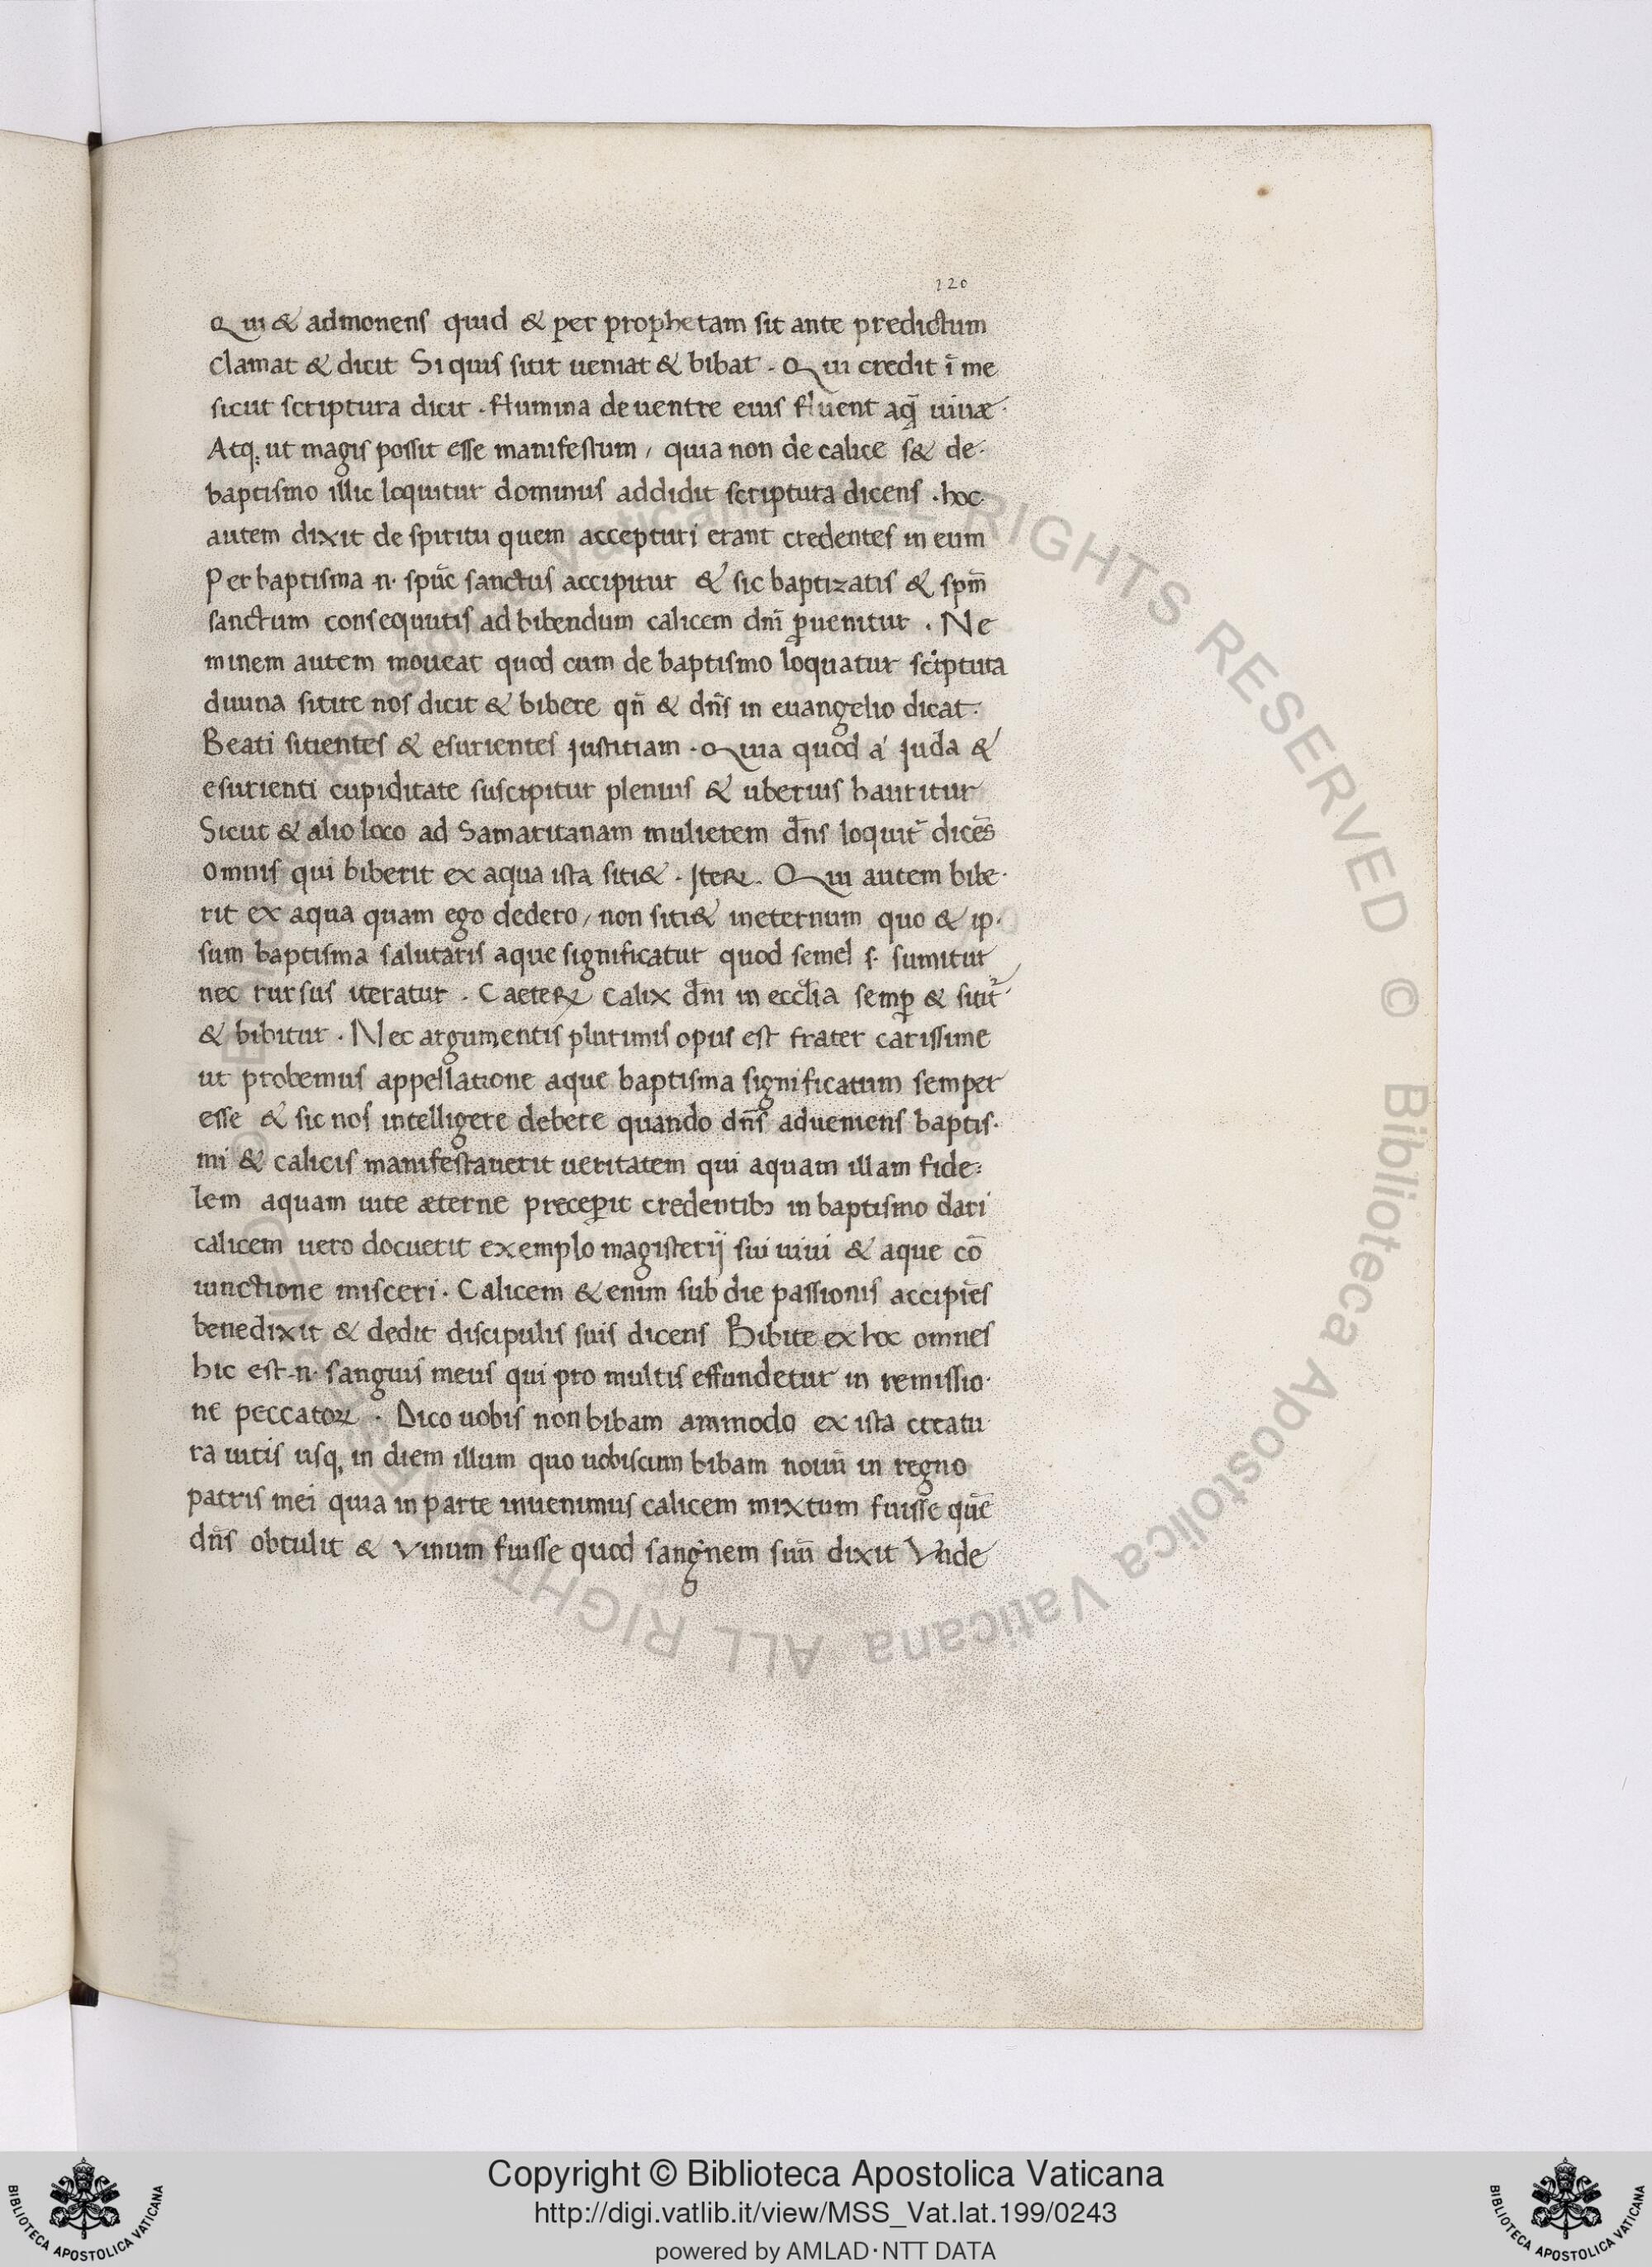 220
Qui & admonens quid & per prophetam sit ante predictum
clamat & dicit Si quis sitit ueniat & bibat . Qui credit ī me
sicut scriptura dicit . flumina de uentre eius fluent aq̄ uiuæ .
Atq; ut magis possit esse manifestum / quia non de calice s& de-
baptismo illic loquitur dominus addidit scriptura dicens . hoc
autem dixit de spiritu quem accepturi erant credentes in eum
Per baptisma .n. spūc sanctus accipitur & sic baptizatis & spm̄
sanctum consequutis ad bibendum calicem dnī ꝑuenitur . Ne
minem autem moueat quod cum de baptismo loquatur scͥptura
diuina sitire nos dicit & bibere qn̄ & dn̄s in euangelio dicat .
Beati sitientes & esurientes justitiam . Quia quod a' juda &
esurienti cupiditate suscipitur plenius & uberius hauritur
Sicut & alio loco ad Samaritanam mulierem dn̄s loquit᷑ dicēs
omnis qui biberit ex aqua ista siti& . Iteꝝ . Qui autem bibe-
rit ex aqua quam ego dedero / non siti& ineternum quo & ip-
sum baptisma salutaris aque significatur quod semel s. sumitur
nec rursus iteratur . Caeteꝝ calix dn̄i in eccl̄ia semꝑ & sitit᷑
& bibitur . Nec argumentis plurimis opus est frater carissime
ut probemus appellatione aque baptisma significatum semper
esse & sic nos intelligere debere quando dn̄s adueniens baptis-
mi & calicis manifestauerit ueritatem qui aquam illam fide=
lem aquam uite æterne preceꝑit credentibꝫ in baptismo dari
calicem uero docuerit exemplo magisterij sui uiui & aque cō
iunctione misceri . Calicem & enim sub die passionis accipiēs
benedixit & dedit discipulis suis dicens Bibite ex hoc omnes
hic est .n. sanguis meus qui pro multis effundetur in remissio-
ne peccatoꝝ . Dico uobis non bibam ammodo ex ista creatu
ra uitis usq; in diem illum quo uobiscum bibam nouū in regno
patris mei quia in parte inuenimus calicem mixtum fuisse quē
dn̄s obtulit & vinum fuisse quod sangͥnem suū dixit Vnde
© Biblioteca Apostolica Vaticana ALL RIGHTS RESERVED
Copyright © Biblioteca Apostolica Vaticana
http://digi.vatlib.it/view/MSS_Vat.lat.199/0243
powered by AMLAD·NTT DATA
BIBLIOTECA APOSTOLICA VATICANA
BIBLIOTECA APOSTOLICA VATICANA